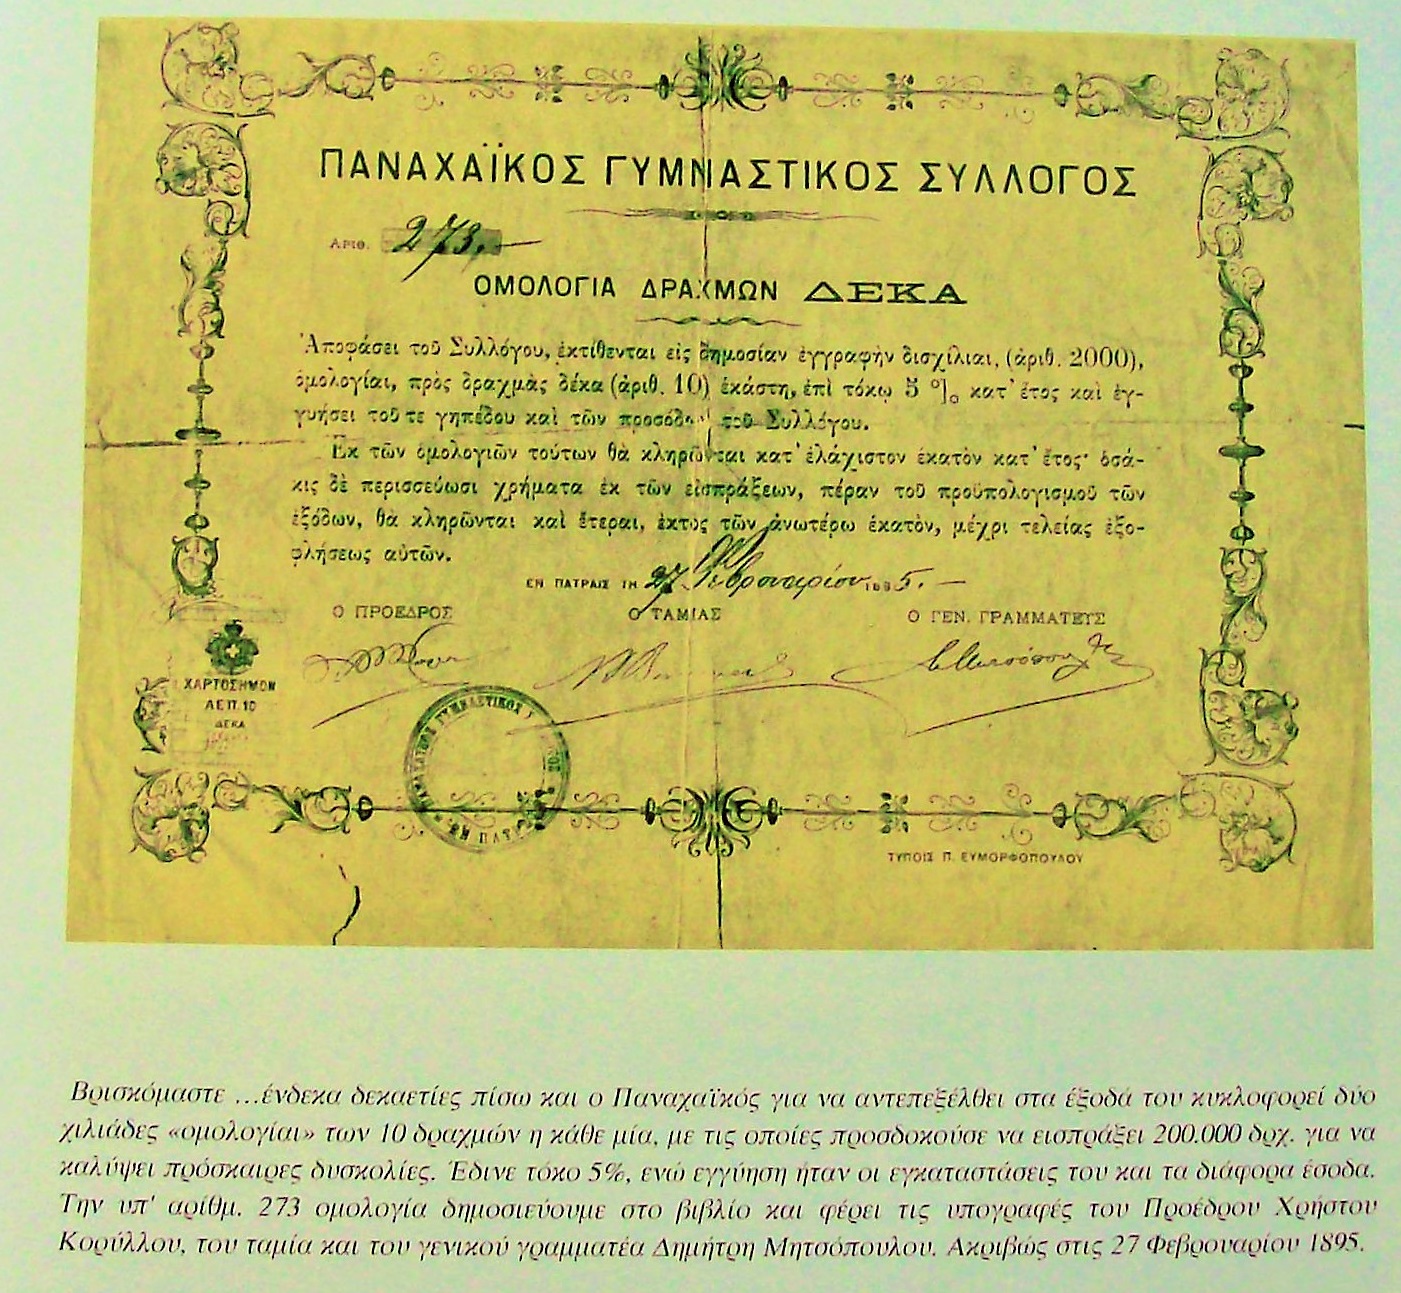 ΠΑΝΑΧΑΪΚΟΣ ΓΥΜΝΑΣΤΙΚΟΣ ΣΥΛΛΟΓΟΣ
ΑΡΙΘ. 273.
ΟΜΟΛΟΓΙΑ ΔΡΑΧΜΩΝ ΔΕΚΑ
Ἀποφάσει τοῦ Συλλόγου, ἐκτίθενται εἰς δημοσίαν ἐγγραφὴν δισχίλιαι, (ἀριθ. 2000),
ὁμολογίαι, πρὸς δραχμὰς δέκα (ἀριθ. 10) ἑκάστη, ἐπὶ τόκῳ 5 % κατ' ἔτος καὶ ἐγ-
γυήσει τοῦ τε γηπέδου καὶ τῶν προσόδων τοῦ Συλλόγου.
Ἐκ τῶν ὁμολογιῶν τούτων θὰ κληρῶνται κατ' ἐλάχιστον ἑκατὸν κατ' ἔτος· ὁσά-
κις δὲ περισσεύωσι χρήματα ἐκ τῶν εἰσπράξεων, πέραν τοῦ προϋπολογισμοῦ τῶν
ἐξόδων, θὰ κληρῶνται καὶ ἕτεραι, ἐκτὸς τῶν ἀνωτέρω ἑκατὸν, μέχρι τελείας ἐξο-
φλήσεως αὐτῶν.
ΕΝ ΠΑΤΡΑΙΣ ΤΗ 27 Φεβρουαρίου 1895.
Ο ΠΡΟΕΔΡΟΣ Ο ΤΑΜΙΑΣ Ο ΓΕΝ. ΓΡΑΜΜΑΤΕΥΣ
Δ. Μητσόπουλος
ΧΑΡΤΟΣΗΜΟΝ
ΛΕΠ. 10
ΔΕΚΑ
ΓΥΜΝΑΣΤΙΚΟΣ
ΕΝ ΠΑΤΡ
ΤΥΠΟΙΣ Π. ΕΥΜΟΡΦΟΠΟΥΛΟΥ
Βρισκόμαστε ...ένδεκα δεκαετίες πίσω και ο Παναχαϊκός για να αντεπεξέλθει στα έξοδά του κυκλοφορεί δύο
χιλιάδες «ομολογίαι» των 10 δραχμών η κάθε μία, με τις οποίες προσδοκούσε να εισπράξει 200.000 δρχ. για να
καλύψει πρόσκαιρες δυσκολίες. Έδινε τόκο 5%, ενώ εγγύηση ήταν οι εγκαταστάσεις του και τα διάφορα έσοδα.
Την υπ' αρίθμ. 273 ομολογία δημοσιεύουμε στο βιβλίο και φέρει τις υπογραφές του Προέδρου Χρήστου
Κορύλλου, του ταμία και του γενικού γραμματέα Δημήτρη Μητσόπουλου. Ακριβώς στις 27 Φεβρουαρίου 1895.